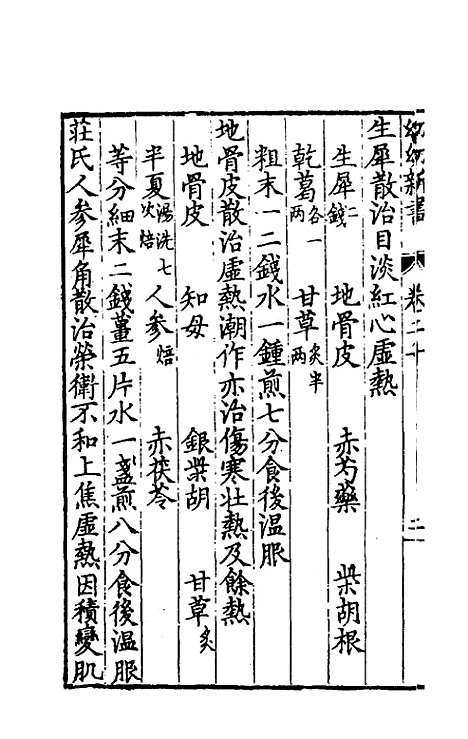 幼幼新書 卷二十 二
生犀散治目淡紅心虛熱
生犀二錢 地骨皮 赤芍藥 柴胡根
乾葛各一兩 甘草炙半兩
粗末一二錢水一鍾煎七分食後温服
地骨皮散治虛熱潮作亦治傷寒壯熱及餘熱
地骨皮 知母 銀柴胡 甘草炙
半夏湯洗七次焙 人參焙 赤茯苓
等分細末二錢薑五片水一盞煎八分食後温服
莊氏人參犀角散治榮衛不和上焦虛熱因積變肌